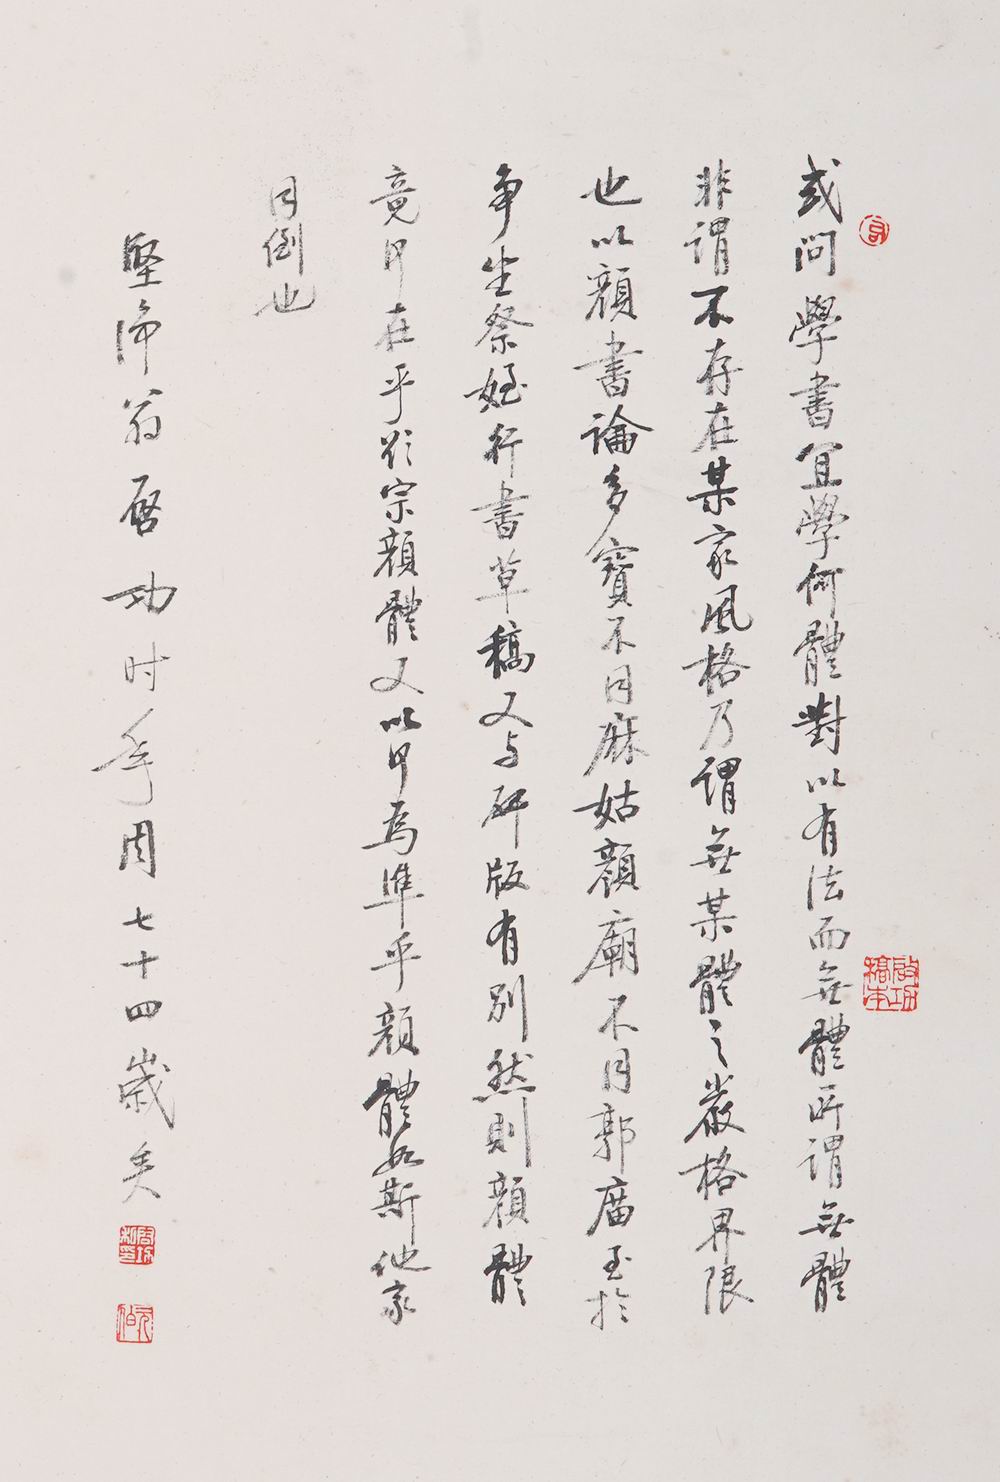 或問學書宜學何體對以有法而無體所謂無體
非謂不存在某家風格乃謂無某體之嚴格界限
也以顏書論多寶不同麻姑顏廟不同郭廟至於
爭坐祭姪行書草稿又与碑版有別然則顏體
竟何在乎欲宗顏體又以何為準乎顏體如斯他家
同例也
堅淨翁啓功时年周七十四歲矣
啟功